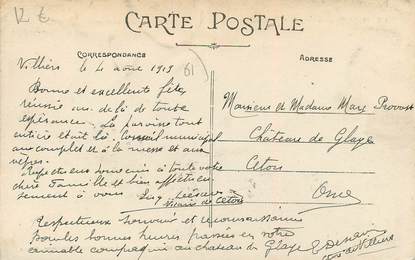 12 €
CARTE POSTALE
CORRESPONDANCE
ADRESSE
Villiers le 4 août 1913
61
Bonne et excellente fête
réussie au delà de toute
espérance. La paroisse tout
entière était là. Conseil municipal
au complet et à la messe et aux
vêpres.
Respectueux souvenirs à toute votre
chère famille et bien affectueu
sement à vous.
vicaire de Ceton
Monsieur et Madame Marc Provost
Château de Glaye
Ceton
Orne
Respectueux souvenir et reconnaissance
Pour les bonnes heures passées en votre
aimable compagnie au château du Glaye